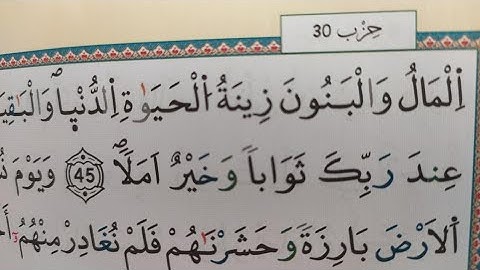 حِزْب 30
اِ۬لْمَالُ وَالْبَنُونَ زِينَةُ اُ۬لْحَيَوٰةِ اِ۬لدُّنْي۪اۖ وَالْبَٰقِيَ
عِندَ رَبِّكَ ثَوَاباٗ وَخَيْرٌ اَمَلاٗۖ 45 وَيَوْمَ
اَ۬لَارْضَ بَارِزَةٗ وَحَشَرْنَٰهُمْ فَلَمْ نُغَادِرْ مِنْهُمُۥٓ